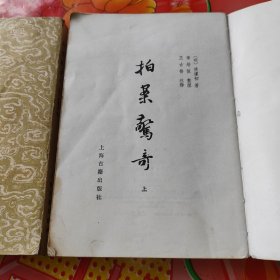 〔明〕凌濛初 著
章培恒 整理
王古魯 注釋
拍案驚奇
上
上海古籍出版社